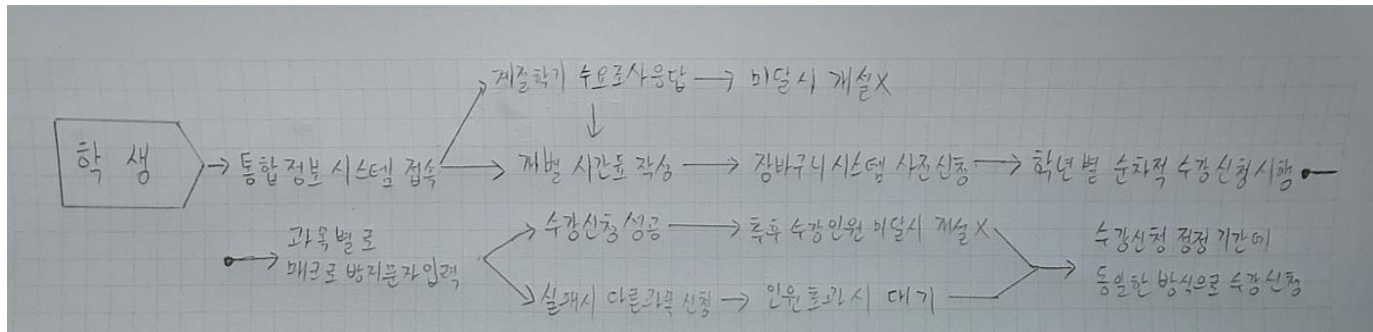 계절학기 수요조사응답 → 미달시 개설X
학생 → 통합정보 시스템 접속 → 개별 시간표 작성 → 장바구니시스템 사전신청 → 학년별 순차적 수강신청시행
과목별로
매크로방지문자입력
수강신청성공 → 추후 수강인원 미달시 개설X
실패시 다른과목신청 → 인원초과시 대기
수강신청 정정기간에
동일한 방식으로 수강신청